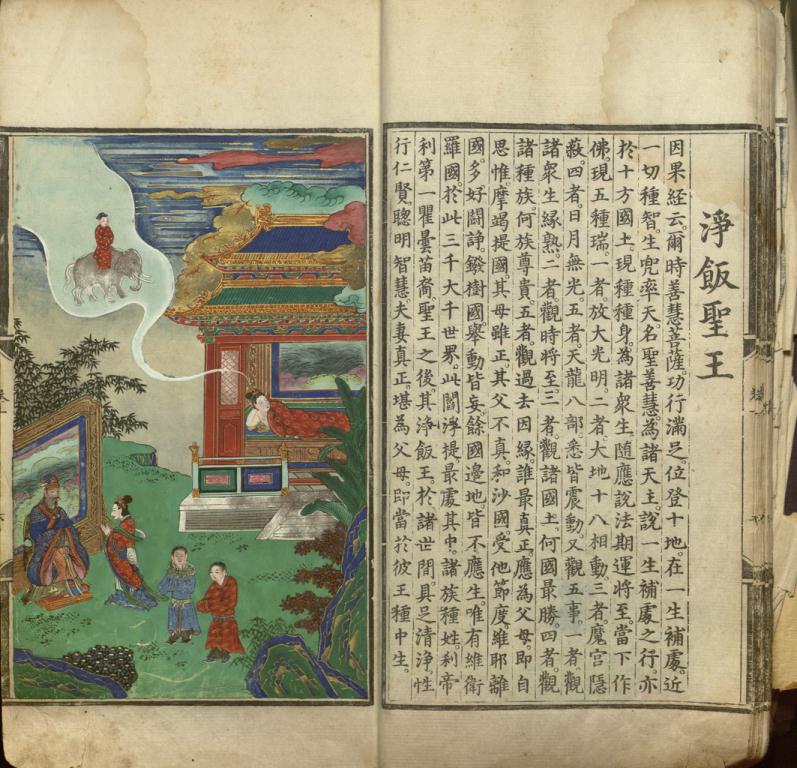 淨飯聖王
因果經云。爾時善慧菩薩。功行滿足。位登十地。在一生補處。近
一切種智。生兜率天。名聖善慧。為諸天主。說一生補處之行。亦
於十方國土。現種種身。為諸衆生。隨應說法。期運將至。當下作
佛。現五種瑞。一者。放大光明。二者。大地十八相動。三者。魔宮隱
蔽。四者。日月無光。五者。天龍八部。悉皆震動。又觀五事。一者。觀
諸衆生緣熟。二者。觀時將至。三者。觀諸國土。何國最勝。四者。觀
諸種族。何族尊貴。五者。觀過去因緣。誰最真正。應為父母。即自
思惟。摩竭提國。其母雖正。其父不真。和沙國。受他節度。雖耶離
國。多好鬪諍。鏺樹國。舉動皆妄。餘國邊地。皆不應生。唯有維衛
羅國。於此三千大千世界。此閻浮提最處其中。諸族種姓。刹帝
利第一。瞿曇苗裔。聖王之後。其淨飯王。於諸世間。具足清淨。性
行仁賢。聰明智慧。夫妻真正。堪為父母。即當於彼王種中生。